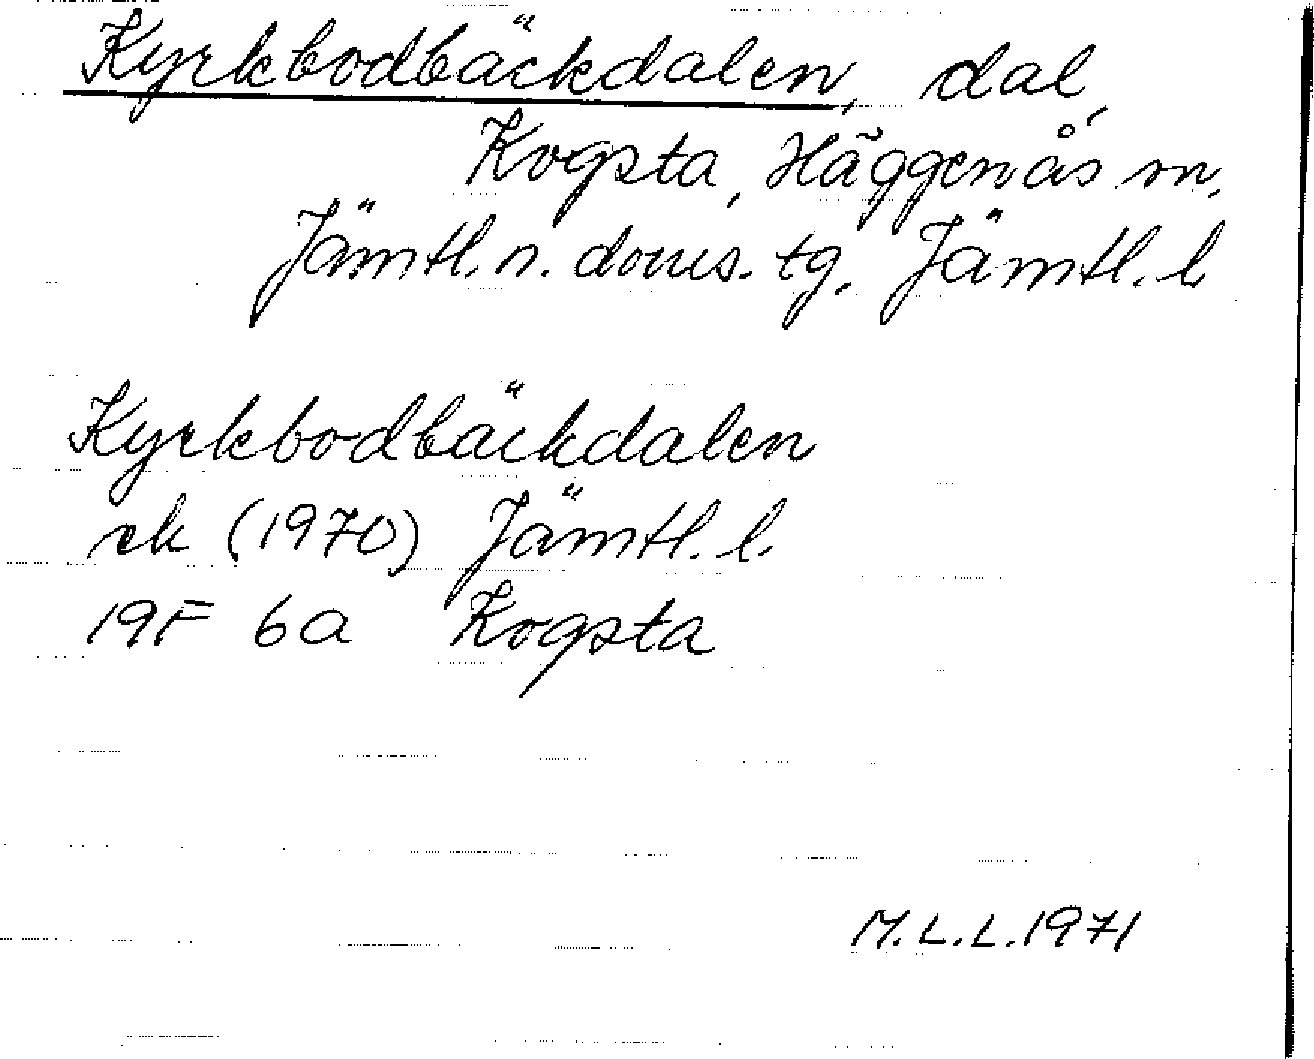 Kyrkbodbäckdalen, dal,
Kogsta, Häggenås sn,
Jämtl. n. doms. tg. Jämtl. l
Kyrkbodbäckdalen
ek (1970) Jämtl. l.
19F 6a Kogsta
M.L.L. 1971